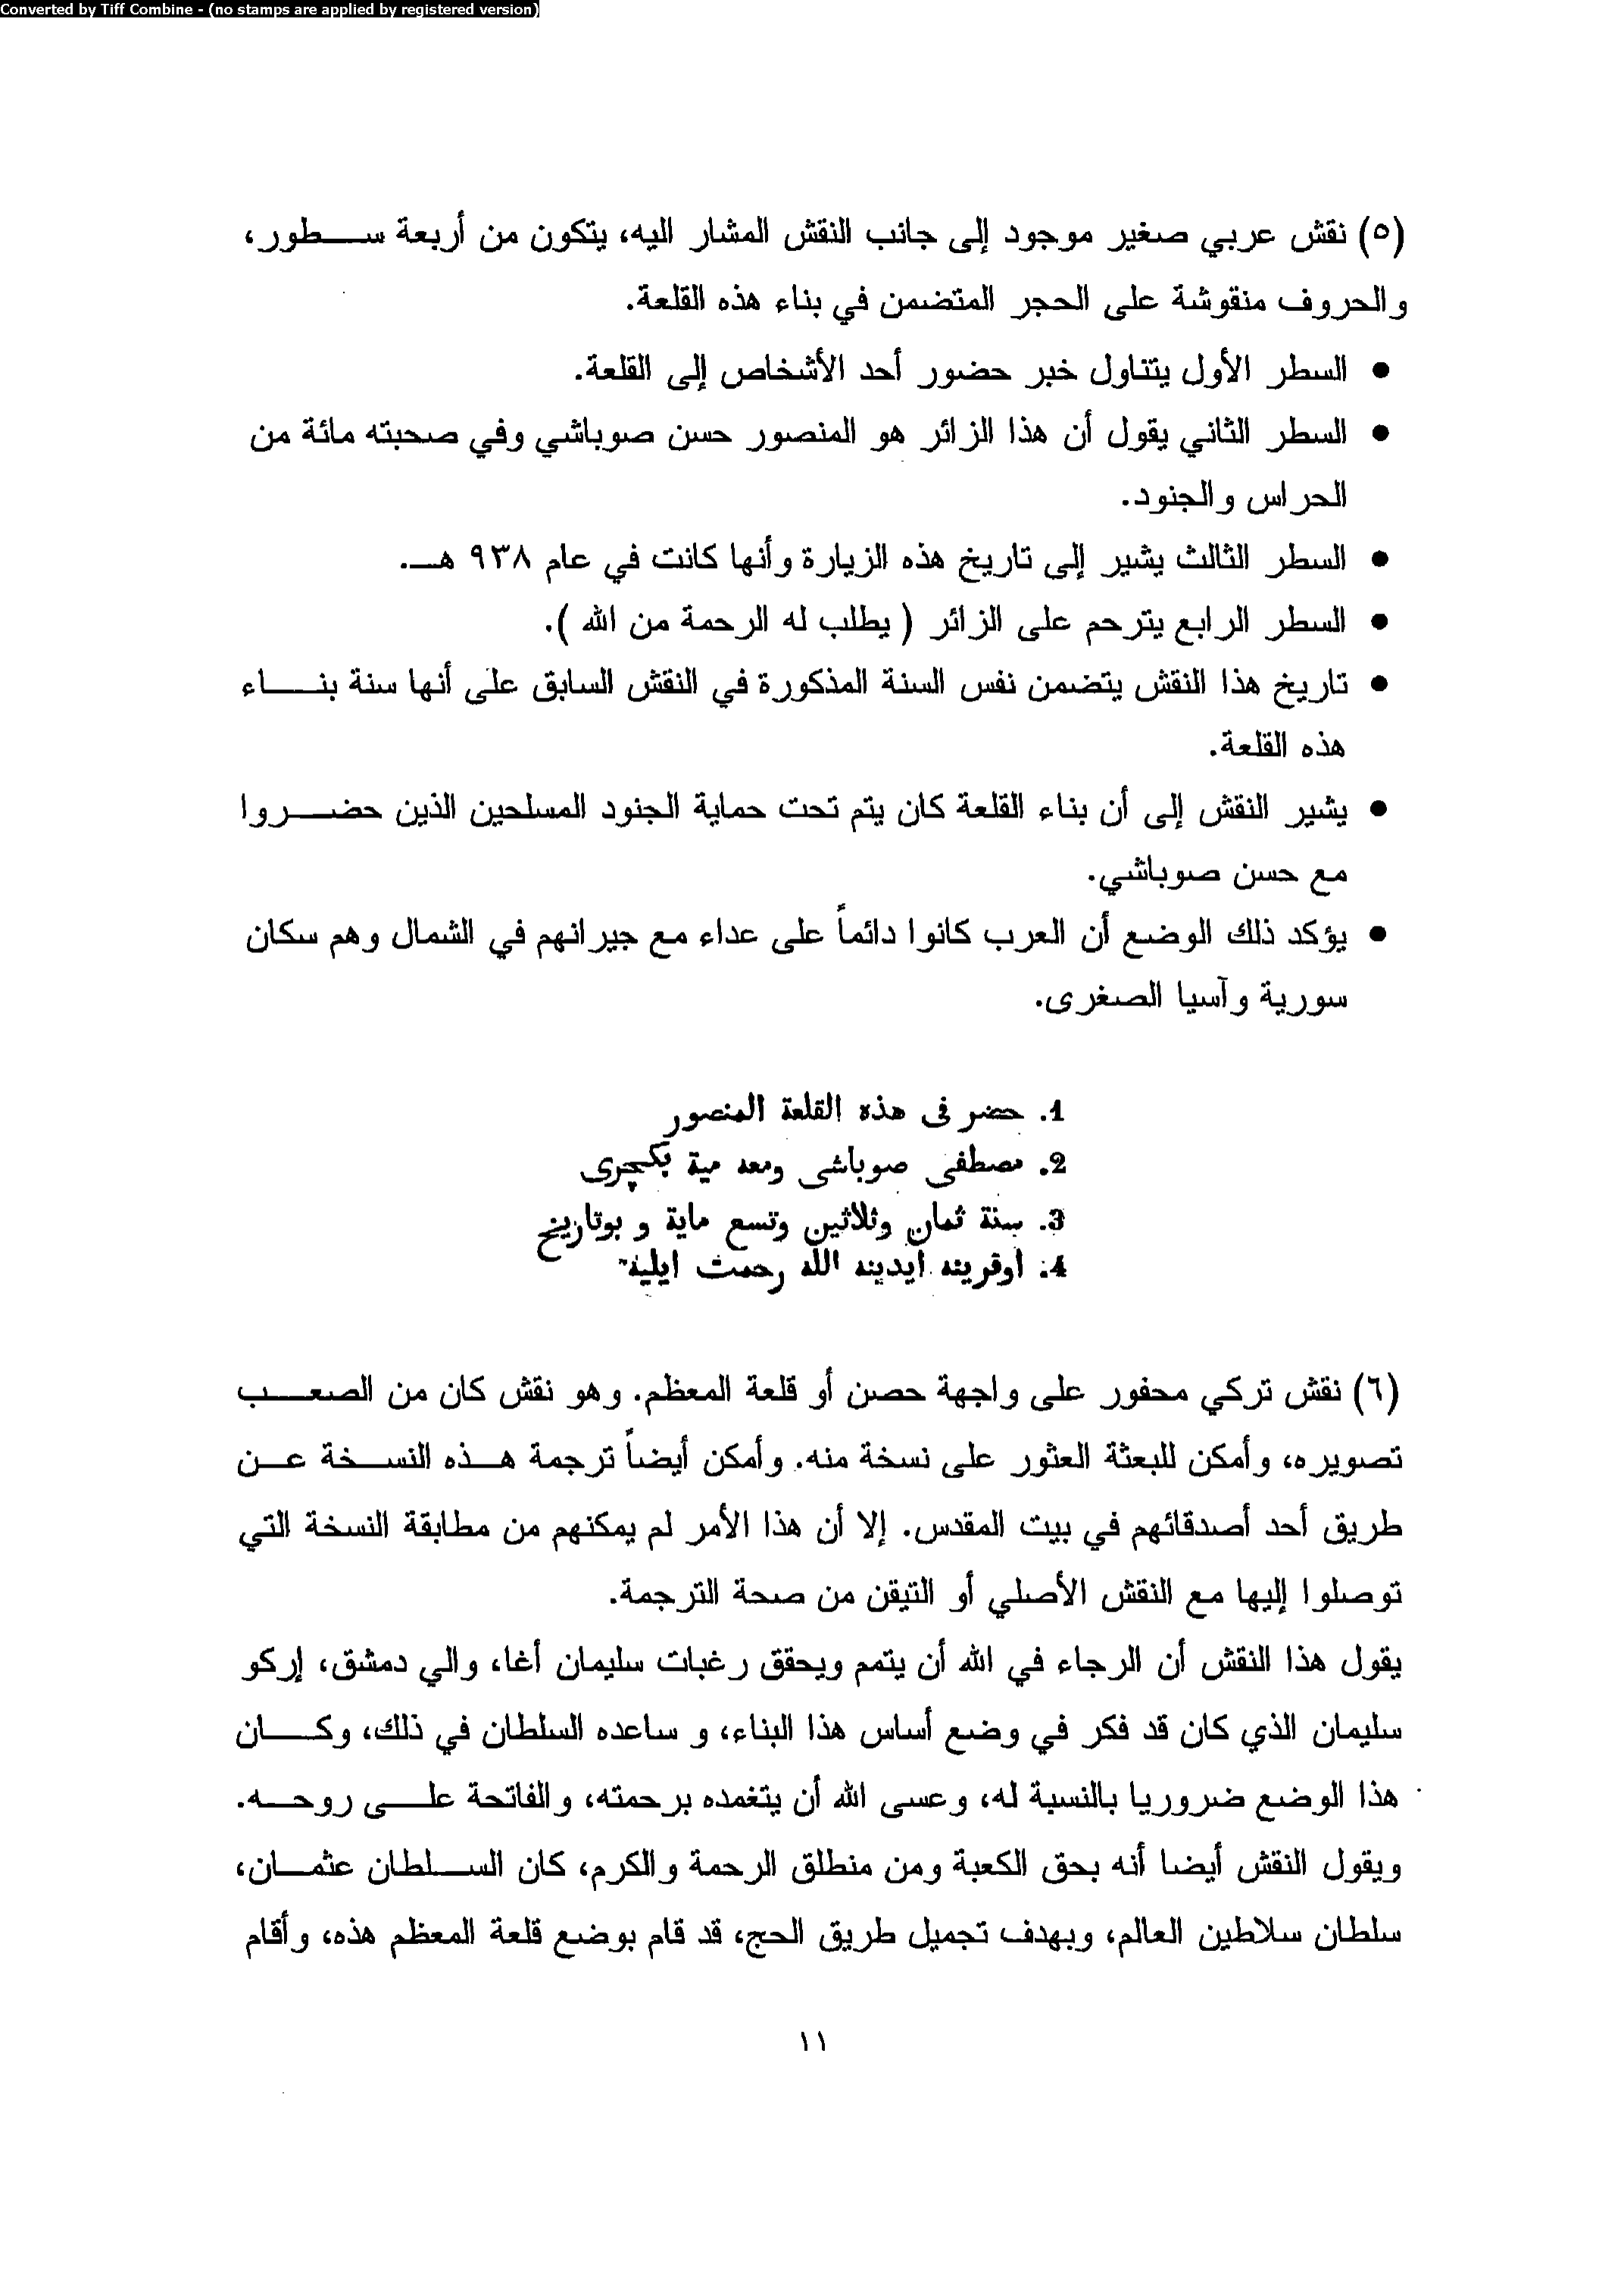 Converted by Tiff Combine - (no stamps are applied by registered version)
(٥) نقش عربي صغير موجود إلى جانب النقش المشار اليه، يتكون من أربعة سطور،
والحروف منقوشة على الحجر المتضمن في بناء هذه القلعة.
• السطر الأول يتناول خبر حضور أحد الأشخاص إلى القلعة.
• السطر الثاني يقول أن هذا الزائر هو المنصور حسن صوباشي وفي صحبته مائة من
الحراس والجنود.
• السطر الثالث يشير إلى تاريخ هذه الزيارة وأنها كانت في عام ٩٣٨ هـ.
• السطر الرابع يترحم على الزائر ( يطلب له الرحمة من الله ).
• تاريخ هذا النقش يتضمن نفس السنة المذكورة في النقش السابق على أنها سنة بناء
هذه القلعة.
• يشير النقش إلى أن بناء القلعة كان يتم تحت حماية الجنود المسلحين الذين حضروا
مع حسن صوباشي.
• يؤكد ذلك الوضع أن العرب كانوا دائماً على عداء مع جيرانهم في الشمال وهم سكان
سورية وآسيا الصغرى.
1. حضر فى هذه القلعة المنصور
2. مصطفى صوباشى ومعه مية يكچرى
3. سنة ثمان وثلاثين وتسع ماية و بوتاريخ
4. اوقرينه ايدينه الله رحمت ايليه
(٦) نقش تركي محفور على واجهة حصن أو قلعة المعظم. وهو نقش كان من الصعب
تصويره، وأمكن للبعثة العثور على نسخة منه. وأمكن أيضاً ترجمة هذه النسخة عن
طريق أحد أصدقائهم في بيت المقدس. إلا أن هذا الأمر لم يمكنهم من مطابقة النسخة التي
توصلوا إليها مع النقش الأصلي أو التيقن من صحة الترجمة.
يقول هذا النقش أن الرجاء في الله أن يتمم ويحقق رغبات سليمان أغا، والي دمشق، إركو
سليمان الذي كان قد فكر في وضع أساس هذا البناء، و ساعده السلطان في ذلك، وكان
هذا الوضع ضروريا بالنسبة له، وعسى الله أن يتغمده برحمته، والفاتحة على روحه.
ويقول النقش أيضا أنه بحق الكعبة ومن منطلق الرحمة والكرم، كان السلطان عثمان،
سلطان سلاطين العالم، وبهدف تجميل طريق الحج، قد قام بوضع قلعة المعظم هذه، وأقام
١١